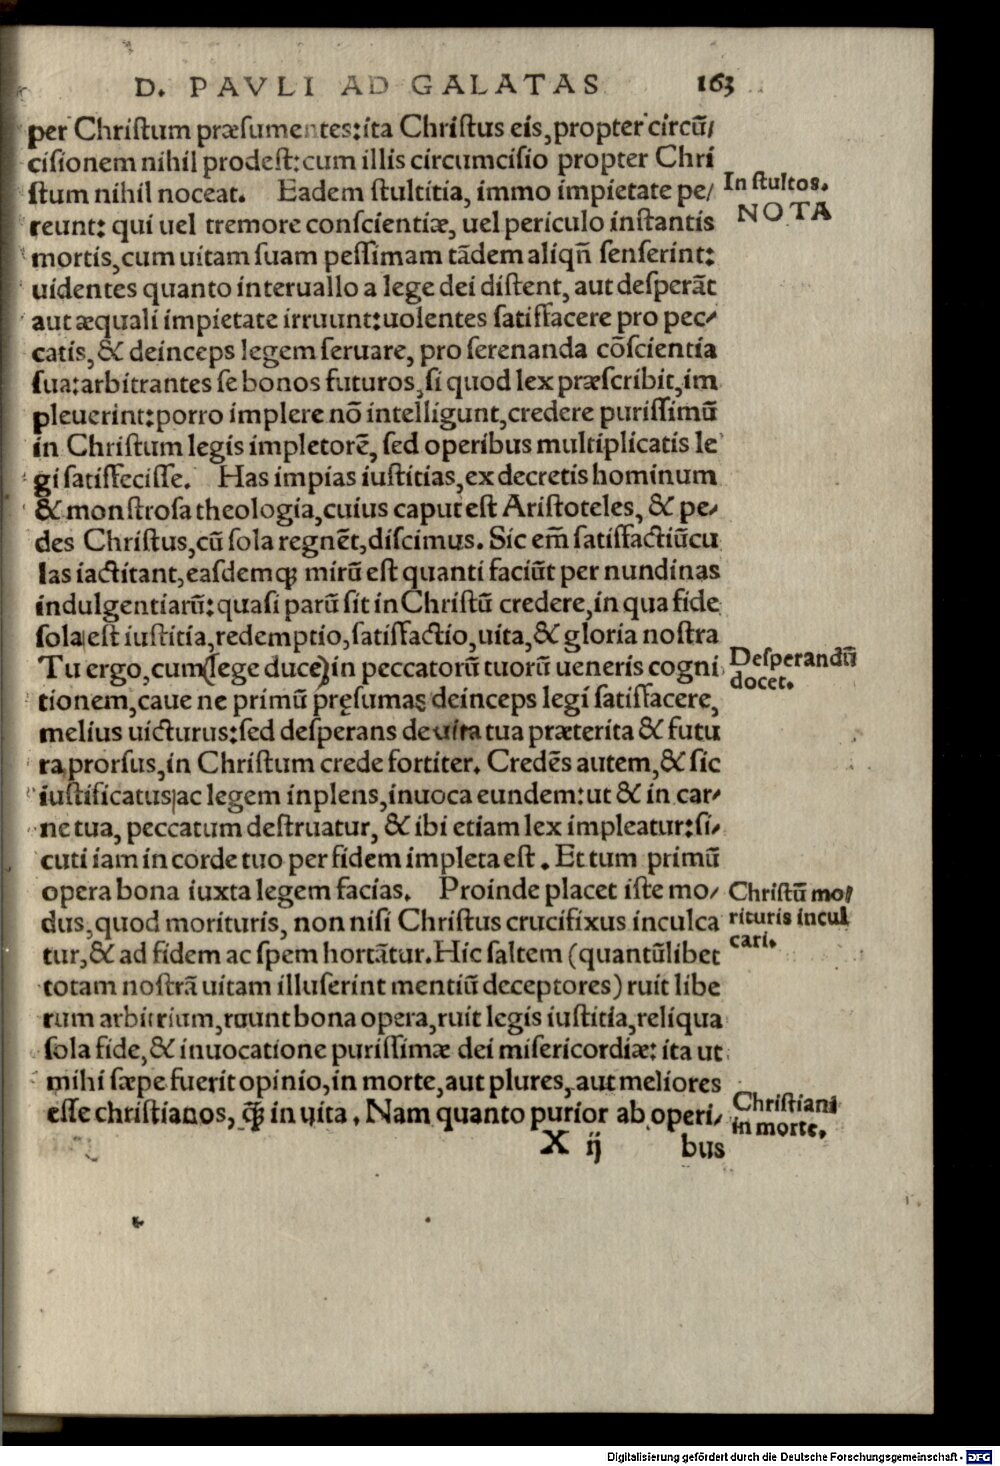 D. PAVLI AD GALATAS 163
per Chriſtum præſumentes:ita Chriſtus eis,propter circũ/
ciſionem nihil prodeſt:cum illis circumciſio propter Chri
ſtum nihil noceat. Eadem ſtultitia, immo impietate pe/
In ſtultos.
NOTA
reunt: qui uel tremore conſcientiæ, uel periculo inſtantis
mortis,cum uitam ſuam peſſimam tãdem aliqñ ſenſerint:
uidentes quanto interuallo a lege dei diſtent, aut deſperãt
aut æquali impietate irruunt:uolentes ſatiſfacere pro pec/
catis, & deinceps legem ſeruare, pro ſerenanda cõſcientia
ſua:arbitrantes ſe bonos futuros,ſi quod lex præſcribit,im
pleuerint:porro implere nõ intelligunt,credere puriſſimũ
in Chriſtum legis impletorẽ, ſed operibus multiplicatis le
gi ſatiſfeciſſe. Has impias iuſtitias,ex decretis hominum
& monſtroſa theologia,cuius caput eſt Ariſtoteles, & pe/
des Chriſtus,cũ ſola regnẽt,diſcimus. Sic em̃ ſatiſfactiũcu
las iactitant,eaſdemꝗ mirũ eſt quanti faciũt per nundinas
indulgentiarũ:quaſi parũ ſit in Chriſtũ credere,in qua fide
ſola eſt iuſtitia,redemptio,ſatiſfactio,uita,& gloria noſtra
Tu ergo,cum(lege duce)in peccatorũ tuorũ ueneris cogni
Deſperandũ
docet.
tionem,caue ne primũ pręſumas deinceps legi ſatiſfacere,
melius uicturus:ſed deſperans de uita tua præterita & futu
ra prorſus,in Chriſtum crede fortiter. Credẽs autem,& ſic
iuſtificatus ac legem inplens,inuoca eundem:ut & in car/
ne tua, peccatum deſtruatur, & ibi etiam lex impleatur:ſi/
cuti iam in corde tuo per fidem impleta eſt. Et tum primũ
opera bona iuxta legem facias. Proinde placet iſte mo/
Chriſtũ mo/
rituris incul
cari.
dus,quod morituris, non niſi Chriſtus crucifixus inculca
tur,& ad fidem ac ſpem hortãtur.Hic ſaltem (quantũlibet
totam noſtrã uitam illuſerint mentiũ deceptores) ruit libe
rum arbitrium,ruunt bona opera,ruit legis iuſtitia,reliqua
ſola fide,& inuocatione puriſſimæ dei miſericordiæ: ita ut
mihi ſæpe fuerit opinio,in morte,aut plures,aut meliores
eſſe chriſtianos, ꝗ̃ in uita. Nam quanto purior ab operi/
Chriſtiani
in morte.
X ij bus
Digitalisierung gefördert durch die Deutsche Forschungsgemeinschaft - DFG